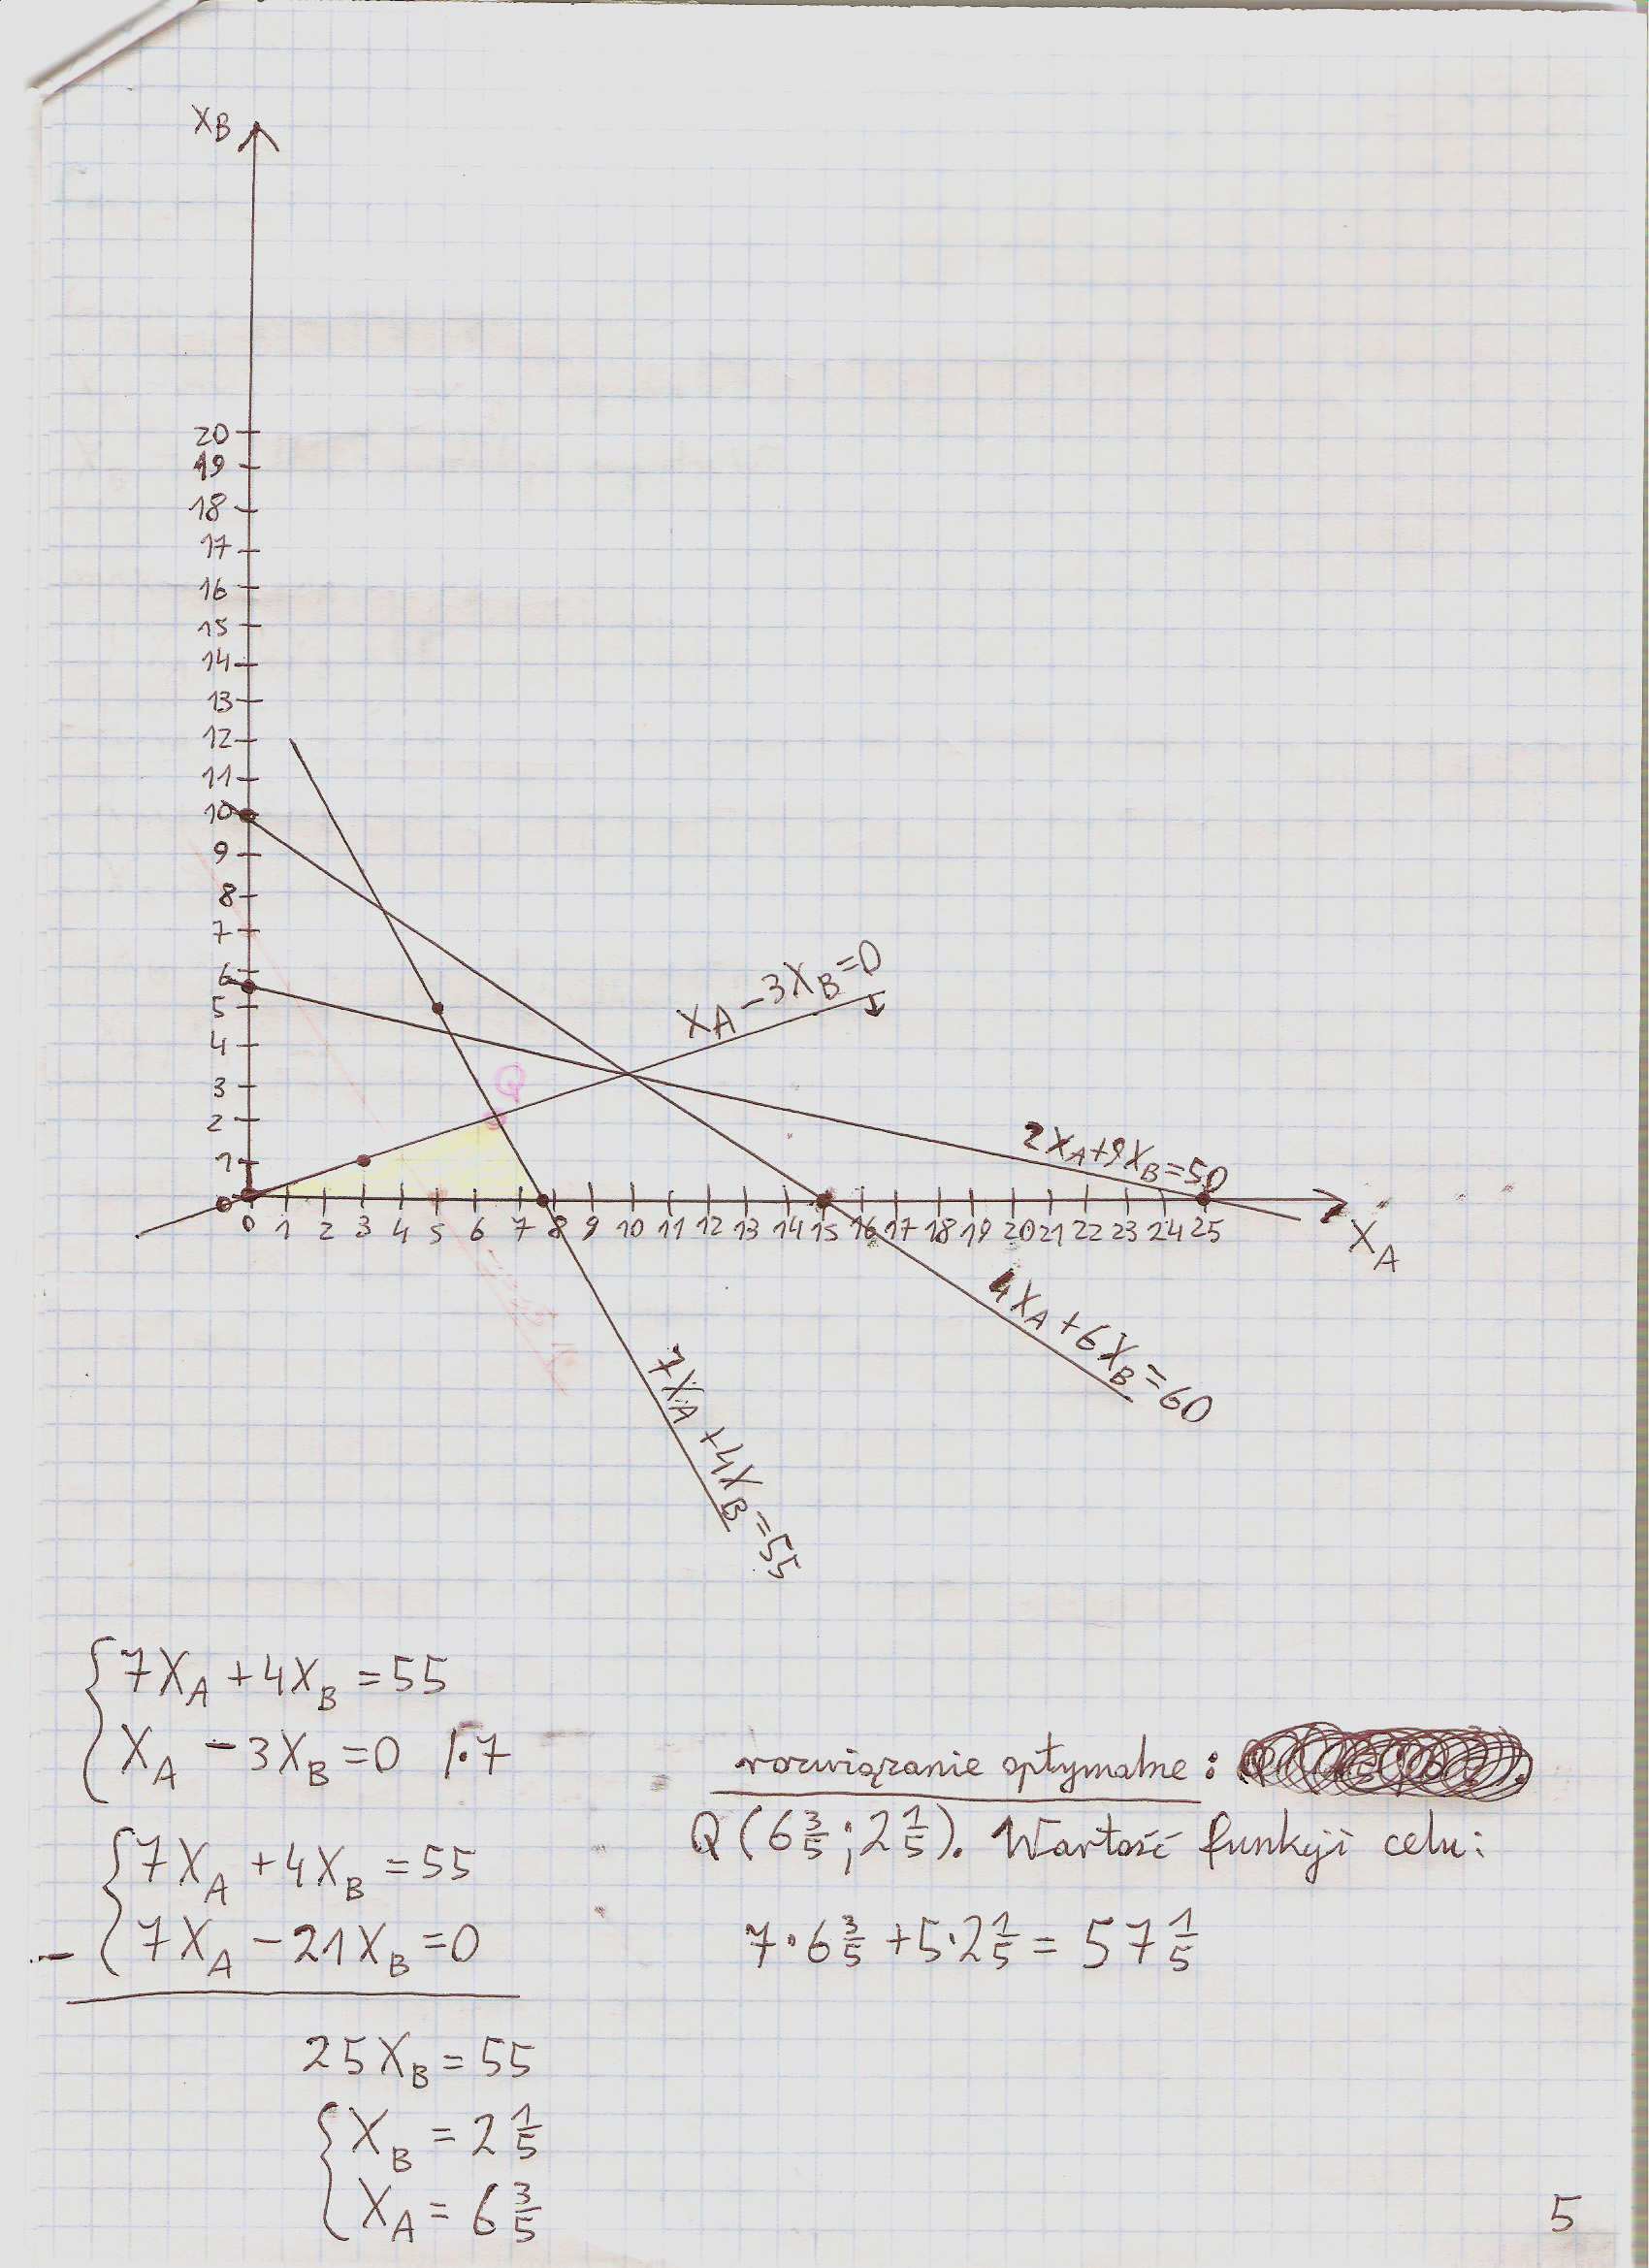 X_B
20
19
18
17
16
15
14
13
12
11
10
9
8
7
6
5
4
3
2
1
0
Q
X_A - 3X_B = 0
2X_A + 9X_B = 50
0 1 2 3 4 5 6 7 8 9 10 11 12 13 14 15 16 17 18 19 20 21 22 23 24 25
X_A
4X_A + 6X_B = 60
7X_A + 4X_B = 55
7X_A + 4X_B = 55
X_A - 3X_B = 0 /·7
7X_A + 4X_B = 55
- 7X_A - 21X_B = 0
25X_B = 55
X_B = 2 1/5
X_A = 6 3/5
rozwiązanie optymalne:
Q (6 3/5; 2 1/5). Wartość funkcji celu:
7·6 3/5 + 5·2 1/5 = 57 1/5
5